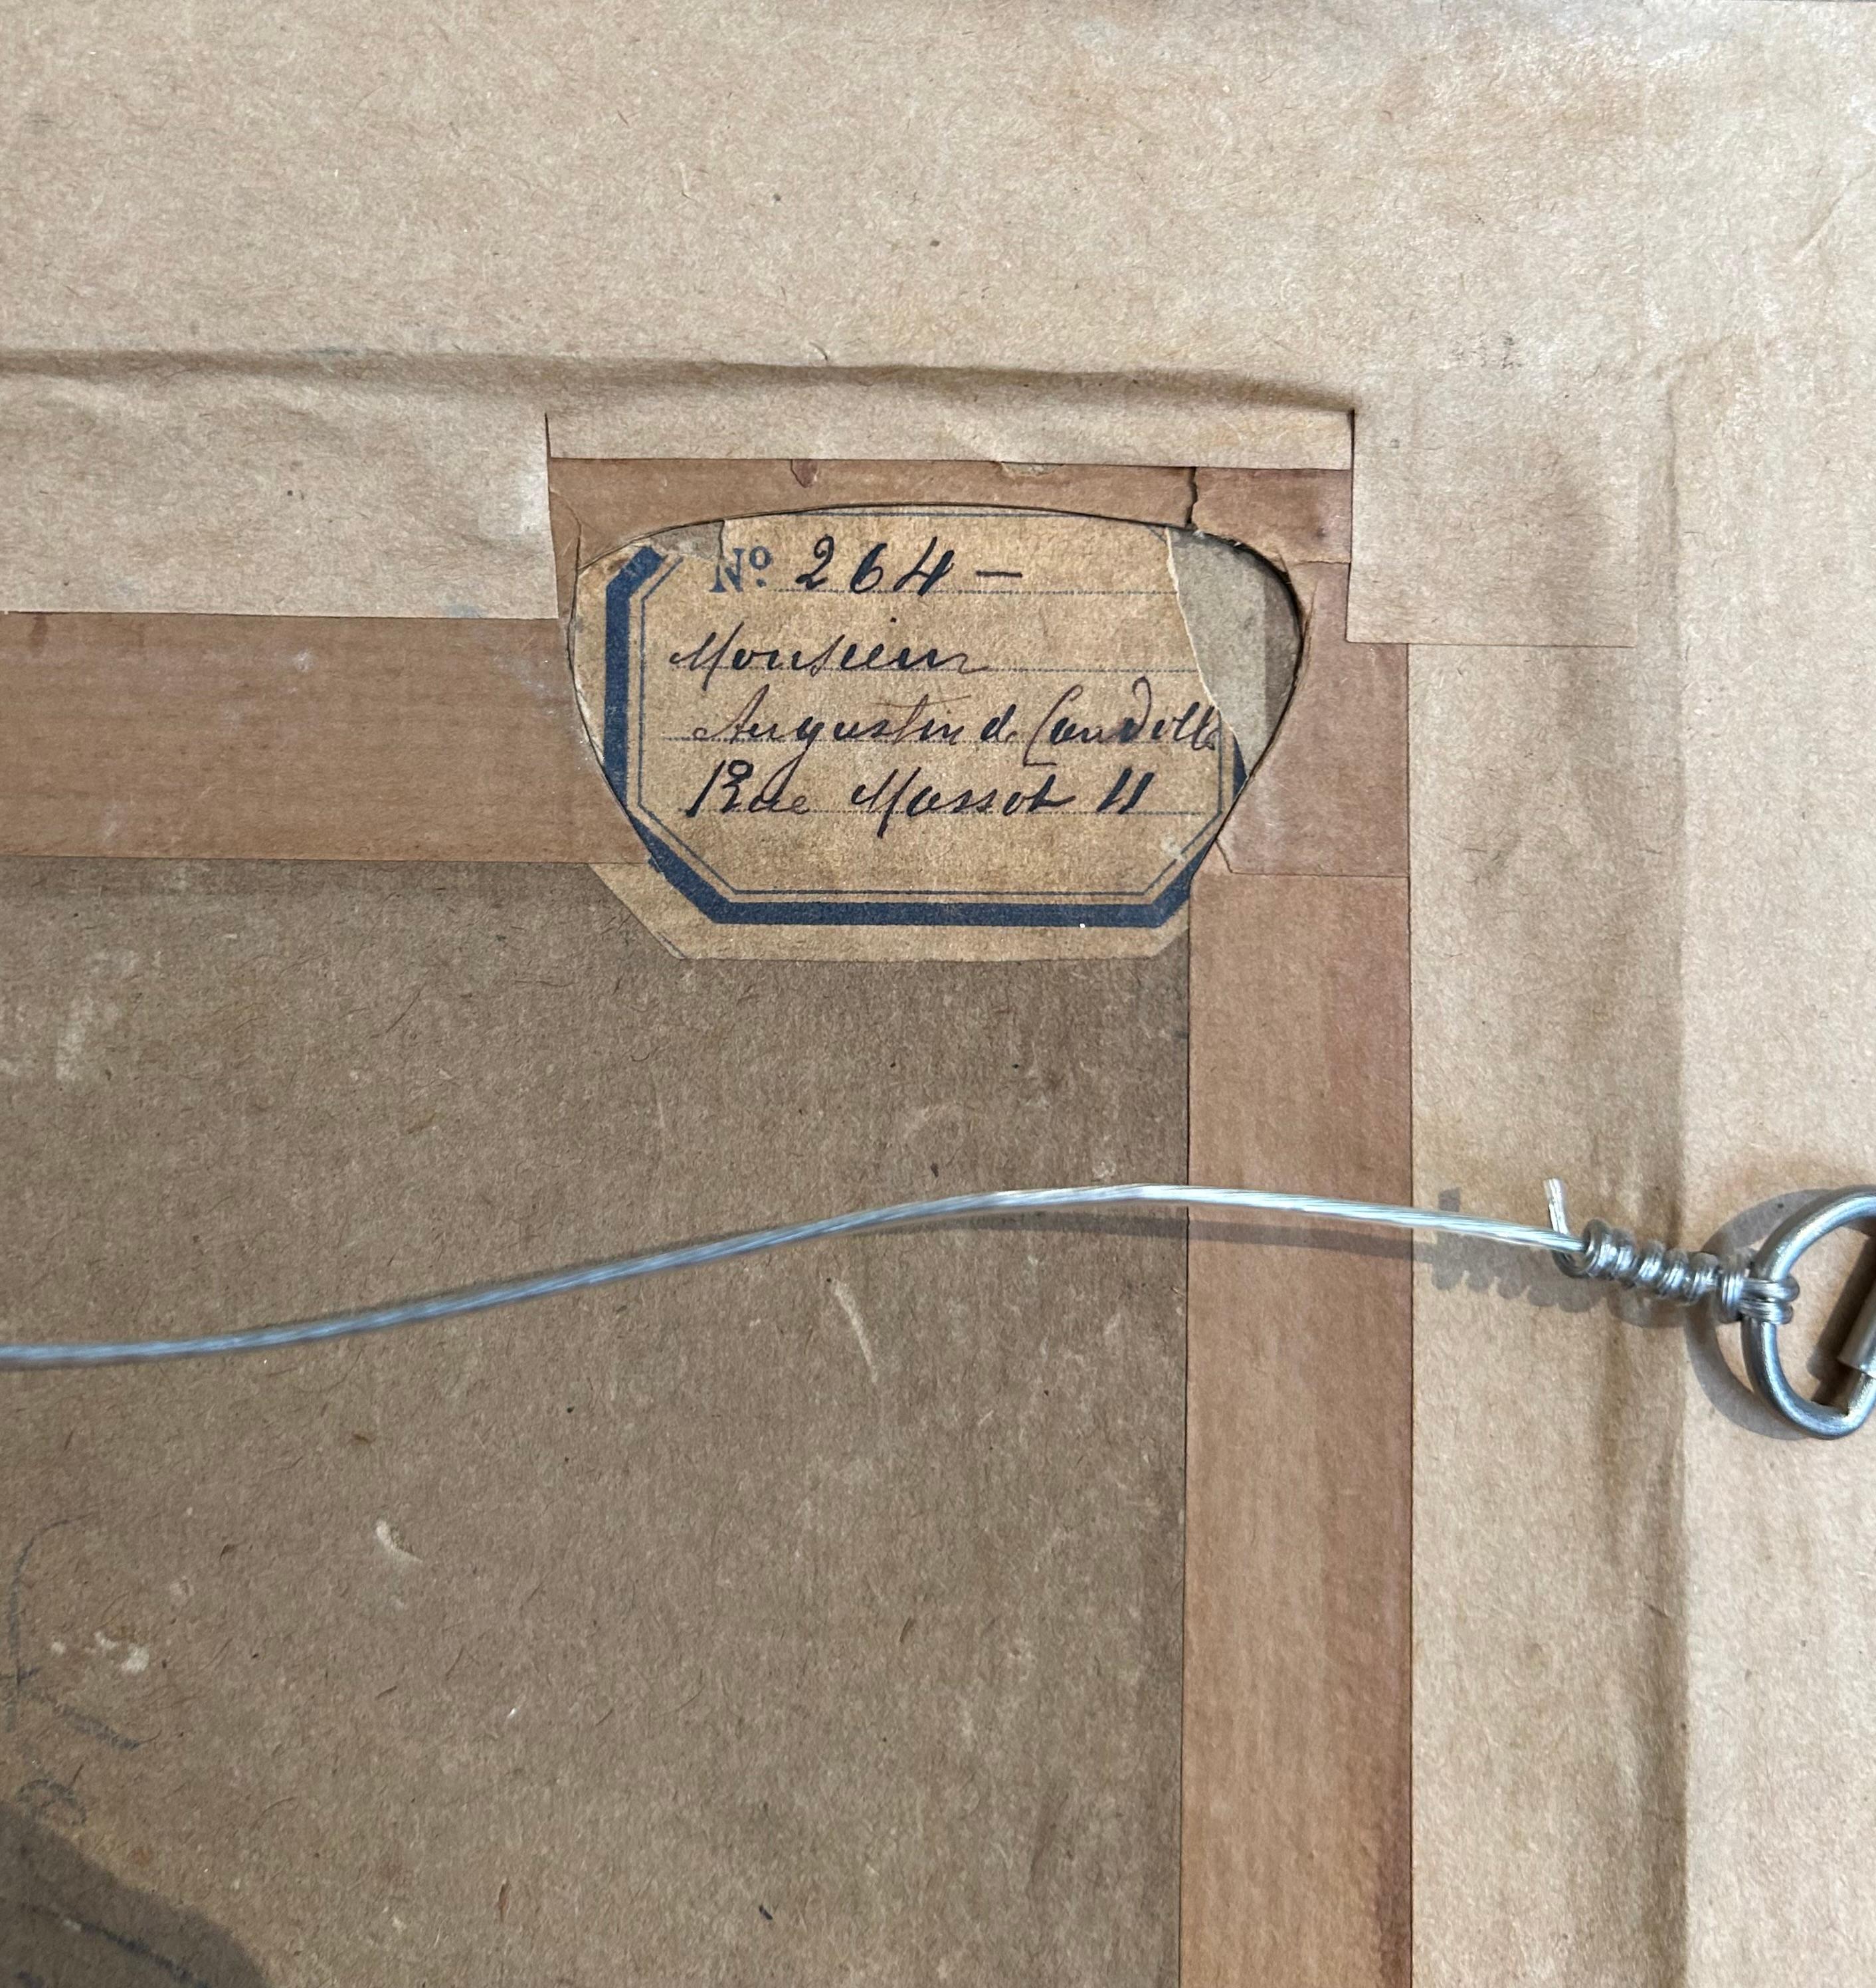 No. 264 —
Monsieur
Augustin de Candolle
Rue Massot 11